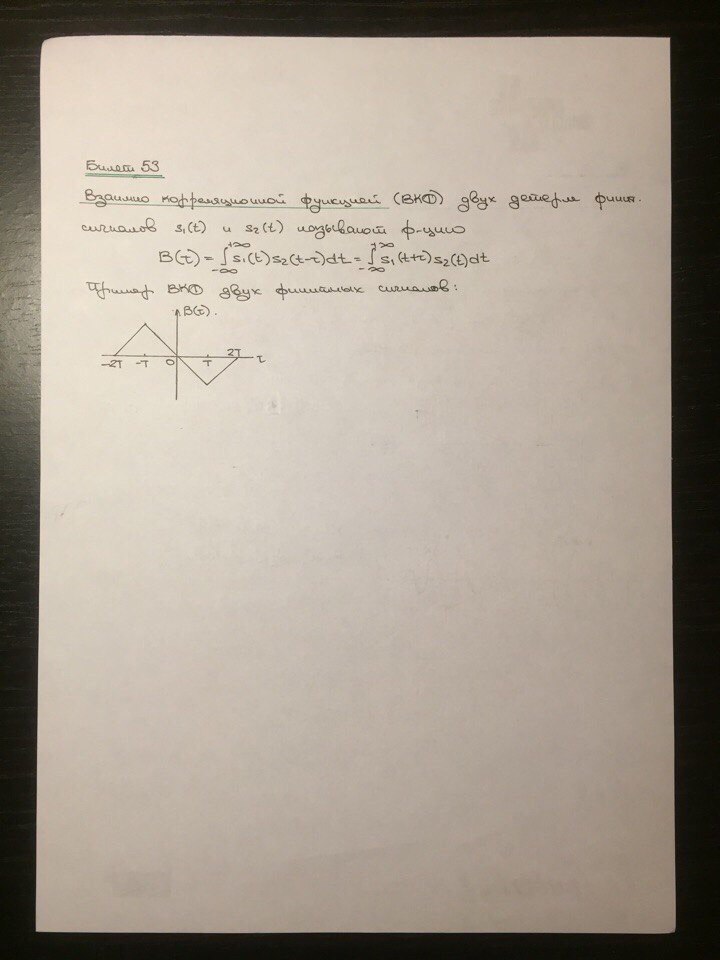 Билет 53
Взаимно корреляционной функцией (ВКФ) двух детерм финит.
сигналов s₁(t) и s₂(t) называют ф-цию
B(τ) = ∫₋∞⁺∞ s₁(t)s₂(t-τ)dt = ∫₋∞⁺∞ s₁(t+τ)s₂(t)dt
Пример ВКФ двух финитных сигналов:
B(τ).
-2T -T 0 T 2T τ